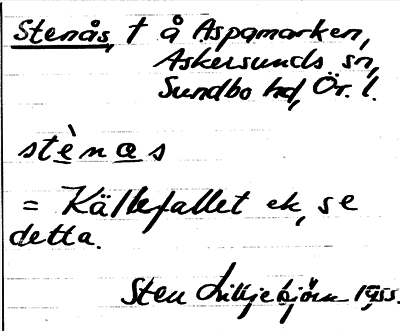 Stenås, † å Aspamarken,
Askersunds sn,
Sundbo hd, Ör. l.
stènas
= Källefallet ek, se
detta.
Sten Liljebjörn 1955.